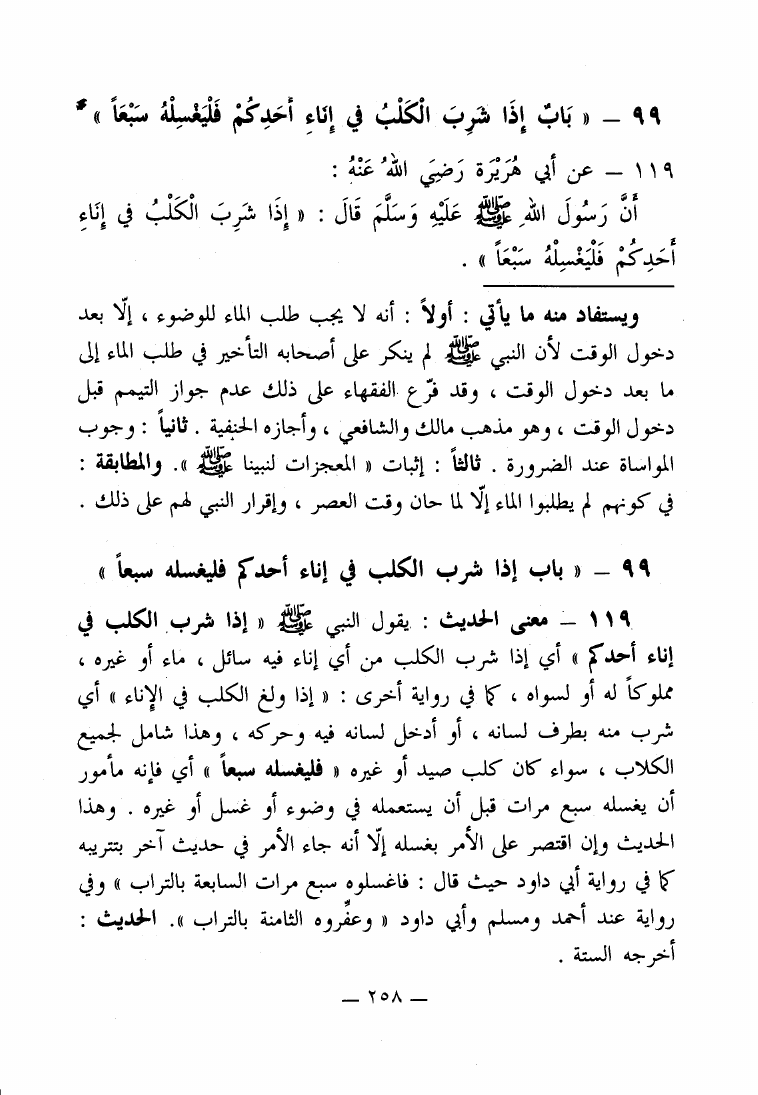 ٩٩ ــ « بَابٌ إِذَا شَرِبَ الْكَلْبُ في إِنَاءِ أَحَدِكُمْ فَلْيَغْسِلْهُ سَبْعَاً »
١١٩ ــ عن أبي هُرَيْرَة رَضِيَ اللهُ عَنْهُ :
أَنَّ رَسُولَ اللهِ ﷺ عَلَيْهِ وَسَلَّمَ قَالَ : « إِذَا شَرِبَ الْكَلْبُ في إِنَاءِ
أَحَدِكُمْ فَلْيَغْسِلْهُ سَبْعَاً » .
ويستفاد منه ما يأتي : أولاً : أنه لا يجب طلب الماء للوضوء ، إلّا بعد
دخول الوقت لأن النبي ﷺ لم ينكر على أصحابه التأخير في طلب الماء إلى
ما بعد دخول الوقت ، وقد فرّع الفقهاء على ذلك عدم جواز التيمم قبل
دخول الوقت ، وهو مذهب مالك والشافعي ، وأجازه الحنفية . ثانياً : وجوب
المواساة عند الضرورة . ثالثاً : إثبات « المعجزات لنبينا ﷺ ». والمطابقة :
في كونهم لم يطلبوا الماء إلّا لما حان وقت العصر ، وإقرار النبي لهم على ذلك .
٩٩ ــ « باب إذا شرب الكلب في إناء أحدكم فليغسله سبعاً »
١١٩ ــ معنى الحديث : يقول النبي ﷺ « إذا شرب الكلب في
إناء أحدكم » أي إذا شرب الكلب من أي إناء فيه سائل ، ماء أو غيره ،
مملوكاً له أو لسواه ، كما في رواية أخرى : « إذا ولغ الكلب في الإناء » أي
شرب منه بطرف لسانه ، أو أدخل لسانه فيه وحركه ، وهذا شامل لجميع
الكلاب ، سواء كان كلب صيد أو غيره « فليغسله سبعاً » أي فإنه مأمور
أن يغسله سبع مرات قبل أن يستعمله في وضوء أو غسل أو غيره . وهذا
الحديث وإن اقتصر على الأمر بغسله إلّا أنه جاء الأمر في حديث آخر بتتريبه
كما في رواية أبي داود حيث قال : فاغسلوه سبع مرات السابعة بالتراب » وفي
رواية عند أحمد ومسلم وأبي داود « وعفِّروه الثامنة بالتراب ». الحديث :
أخرجه الستة .
ــ ٢٥٨ ــ